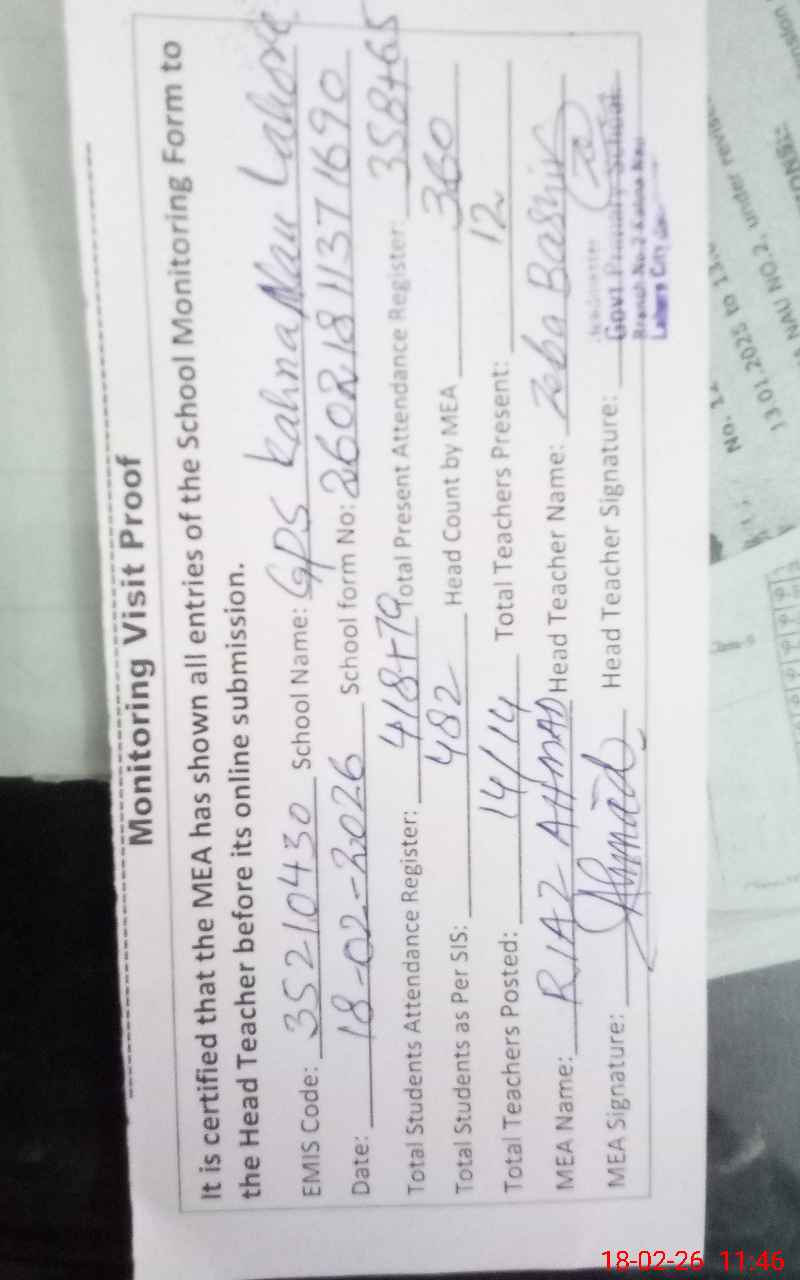 Monitoring Visit Proof
It is certified that the MEA has shown all entries of the School Monitoring Form to
the Head Teacher before its online submission.
EMIS Code: 35210430 School Name: GPS Kahna Nau Lahore
Date: 18-02-2026 School form No: 26021811371690
Total Students Attendance Register: 418+79 Total Present Attendance Register: 358+65
Total Students as Per SIS: 482 Head Count by MEA 360
Total Teachers Posted: 14/14 Total Teachers Present: 12
MEA Name: RIAZ AHMAD Head Teacher Name: Zeba Bashir
MEA Signature: Ahmad Head Teacher Signature:
Govt Primary School
Branch No.2 Kahna Nau
Lahore City
No. 12
13.01.2025 to 13.0
NAU NO.2, under revis
18-02-26 11:46